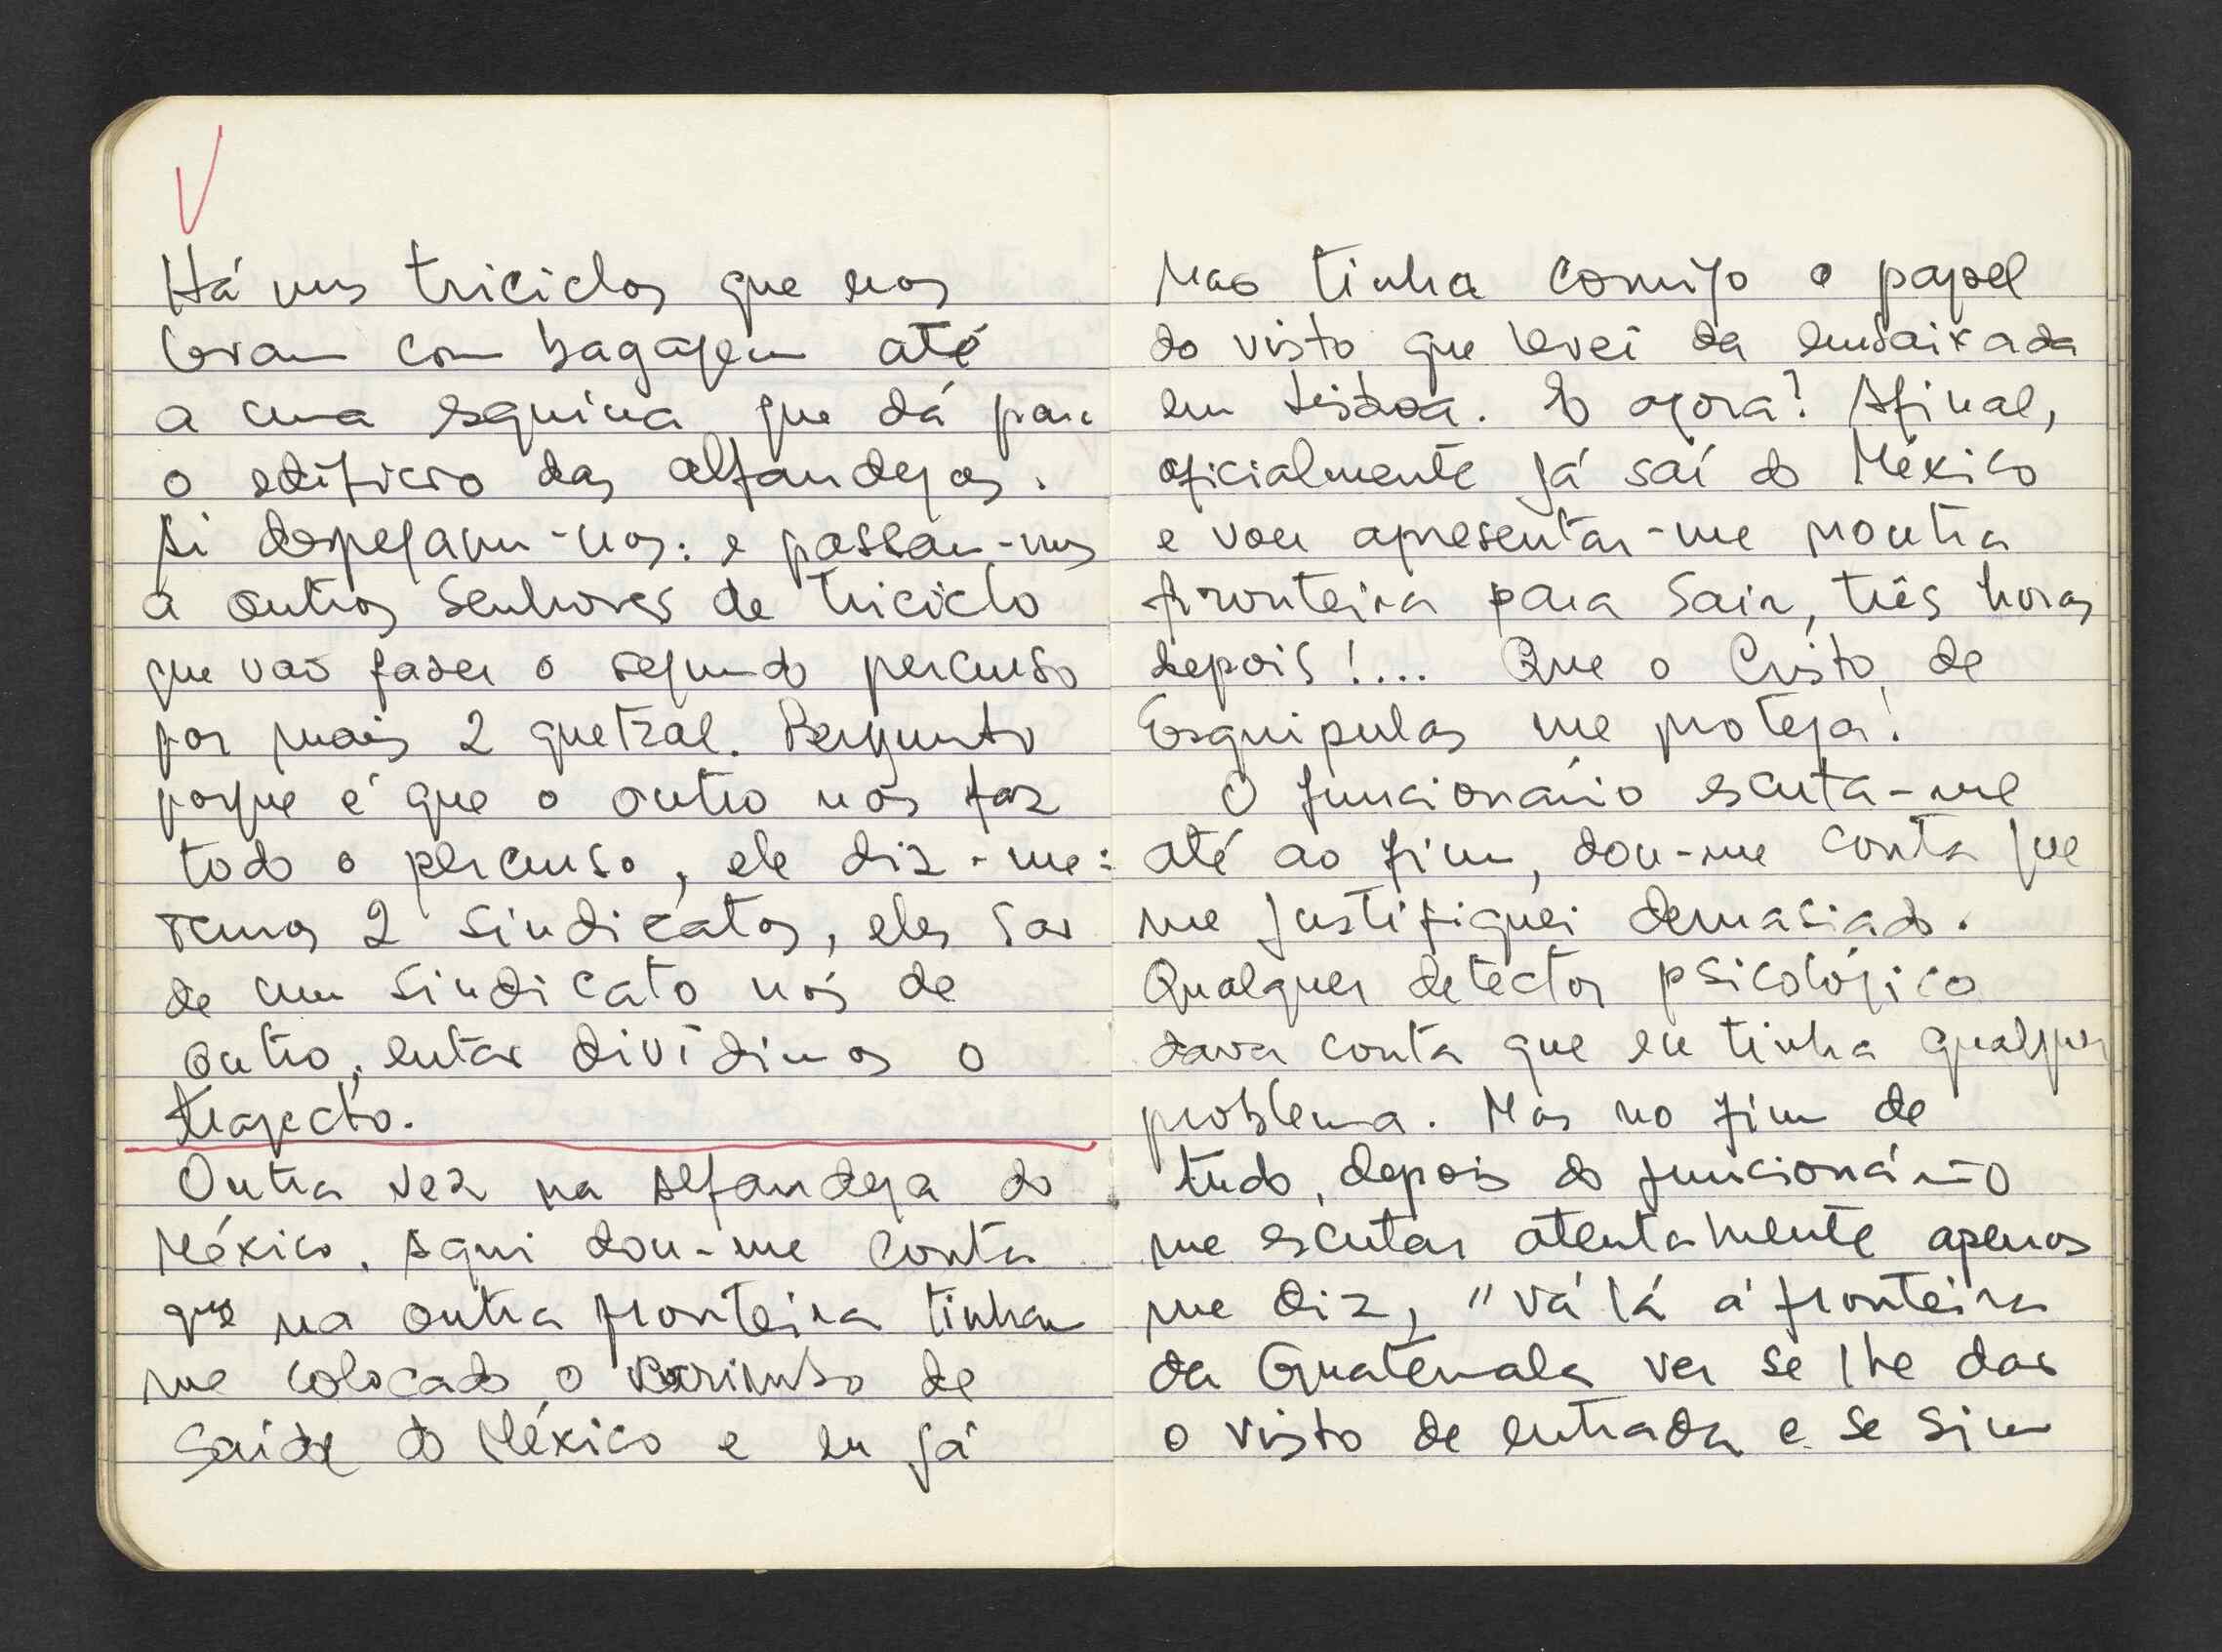 Há uns triciclos que nos
levam com bagagem até
a uma esquina que dá para
o edifício das alfandegas.
Aí despejam-nos: e passam-nos
a outros senhores de triciclo
que vão fazer o segundo percurso
por mais 2 quetzal. Pergunto
porque é que o outro não faz
todo o percurso, ele diz-me:
temos 2 sindicatos, eles são
de um sindicato nós de
outro, então dividimos o
trajecto.
Outra vez na Alfandega do
México. Aqui dou-me conta
que na outra fronteira tinham
me colocado o carimbo de
saída do México e eu já
não tinha comigo o papel
do visto que levei da embaixada
em Lisboa. E agora? Afinal,
oficialmente já saí do México
e vou apresentar-me noutra
fronteira para sair, três horas
depois!... Que o Cristo de
Esquipulas me proteja!
O funcionário escuta-me
até ao fim, dou-me conta que
me justifiquei demasiado.
Qualquer detector psicológico
dava conta que eu tinha qualquer
problema. Mas no fim de
tudo, depois do funcionário
me escutar atentamente apenas
me diz, "vá lá à fronteira
da Guatemala ver se lhe dão
o visto de entrada e se sim